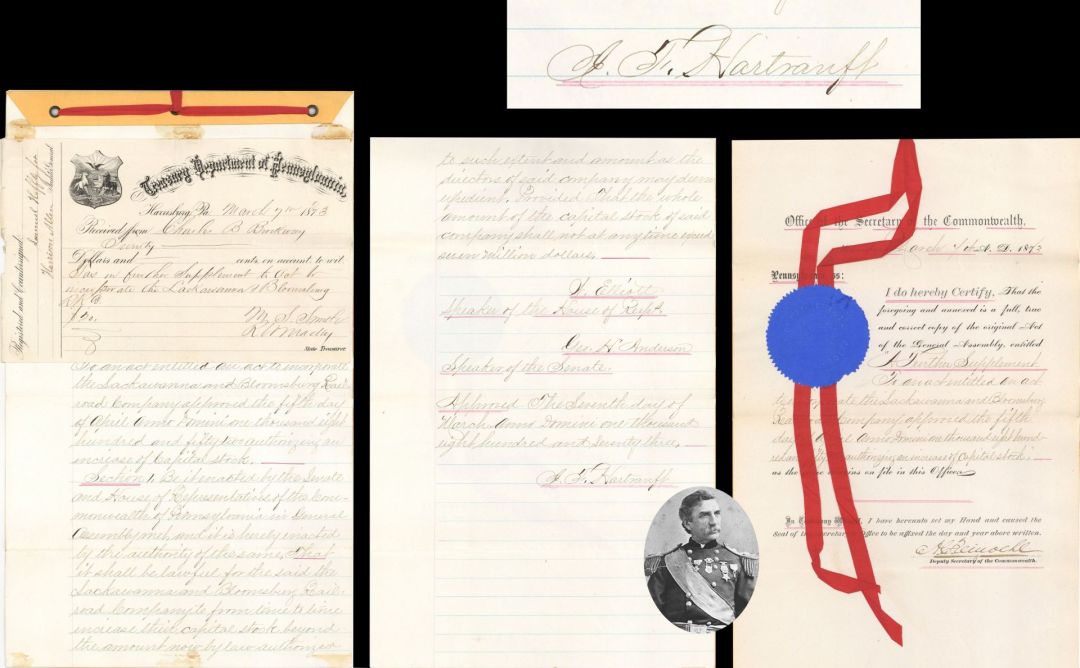 J. F. Hartranft
Registered and Countersigned.
Harrison Allen
Treasury Department of Pennsylvania,
Harrisburg, Pa. March 7th 1873
Received from Charles B Brockway
Twenty
Dollars and cents, on account, to wit
Tax on further Supplement to Act to
incorporate the Lackawanna & Bloomsburg
R R Co
$20.
State Treasurer
To an act entitled an act to incorporate
the Lackawanna and Bloomsburg Rail
road Company approved the fifth day
of April Anno Domini one thousand eight
hundred and fifty two authorizing an
increase of Capital stock.
Section 1. Be it enacted by the Senate
and House of Representatives of the Com-
monwealth of Pennsylvania in General
Assembly met, and it is hereby enacted
by the authority of the same, That
it shall be lawful for the said the
Lackawanna and Bloomsburg Rail-
road Company to from time to time
increase their capital stock beyond
the amount now by law authorized
to such extent and amount as the
directors of said company may deem
expedient. Provided That the whole
amount of the capital stock of said
company shall not at any time exceed
seven million dollars.
Elliott
Speaker of the House of Rep
Geo. H. Anderson
Speaker of the Senate.
Approved The Seventh day of
March Anno Domini one thousand
eight hundred and seventy three.
J. F. Hartranft
Office the Secretary the Commonwealth.
March A. D. 1873
Pennsylvania, ss:
I do hereby Certify, That the
foregoing and annexed is a full, true
and correct copy of the original Act
of the General Assembly, entitled
"A Further Supplement
To an act entitled an act
the Lackawanna and Bloomsburg
Company approved the fifth
day Anno Domini one thousand eight hund-
authorizing an increase of Capital stock
as the on file in this Office
In Testimony I have hereunto set my Hand and caused the
Seal of the Secretary's Office to be affixed the day and year above written.
Deputy Secretary of the Commonwealth.